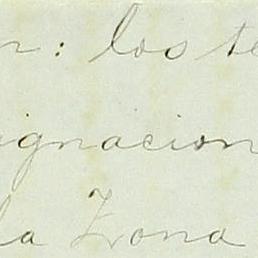 r: los te
ignacion
la Zona